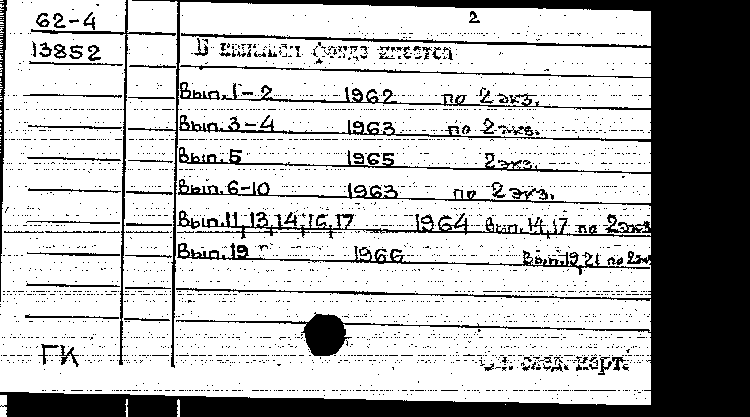 62-4 2
13852 В книжном фонде имеется
Вып. 1-2 1962 по 2 экз.
Вып. 3-4 1963 по 2 экз.
Вып. 5 1965 2 экз.
Вып. 6-10 1963 по 2 экз.
Вып. 11, 13, 14, 16, 17 1964 Вып. 14, 17 по 2 экз
Вып. 19 1966 Вып. 19, 21 по 2 эк
ГК См. след. карт.